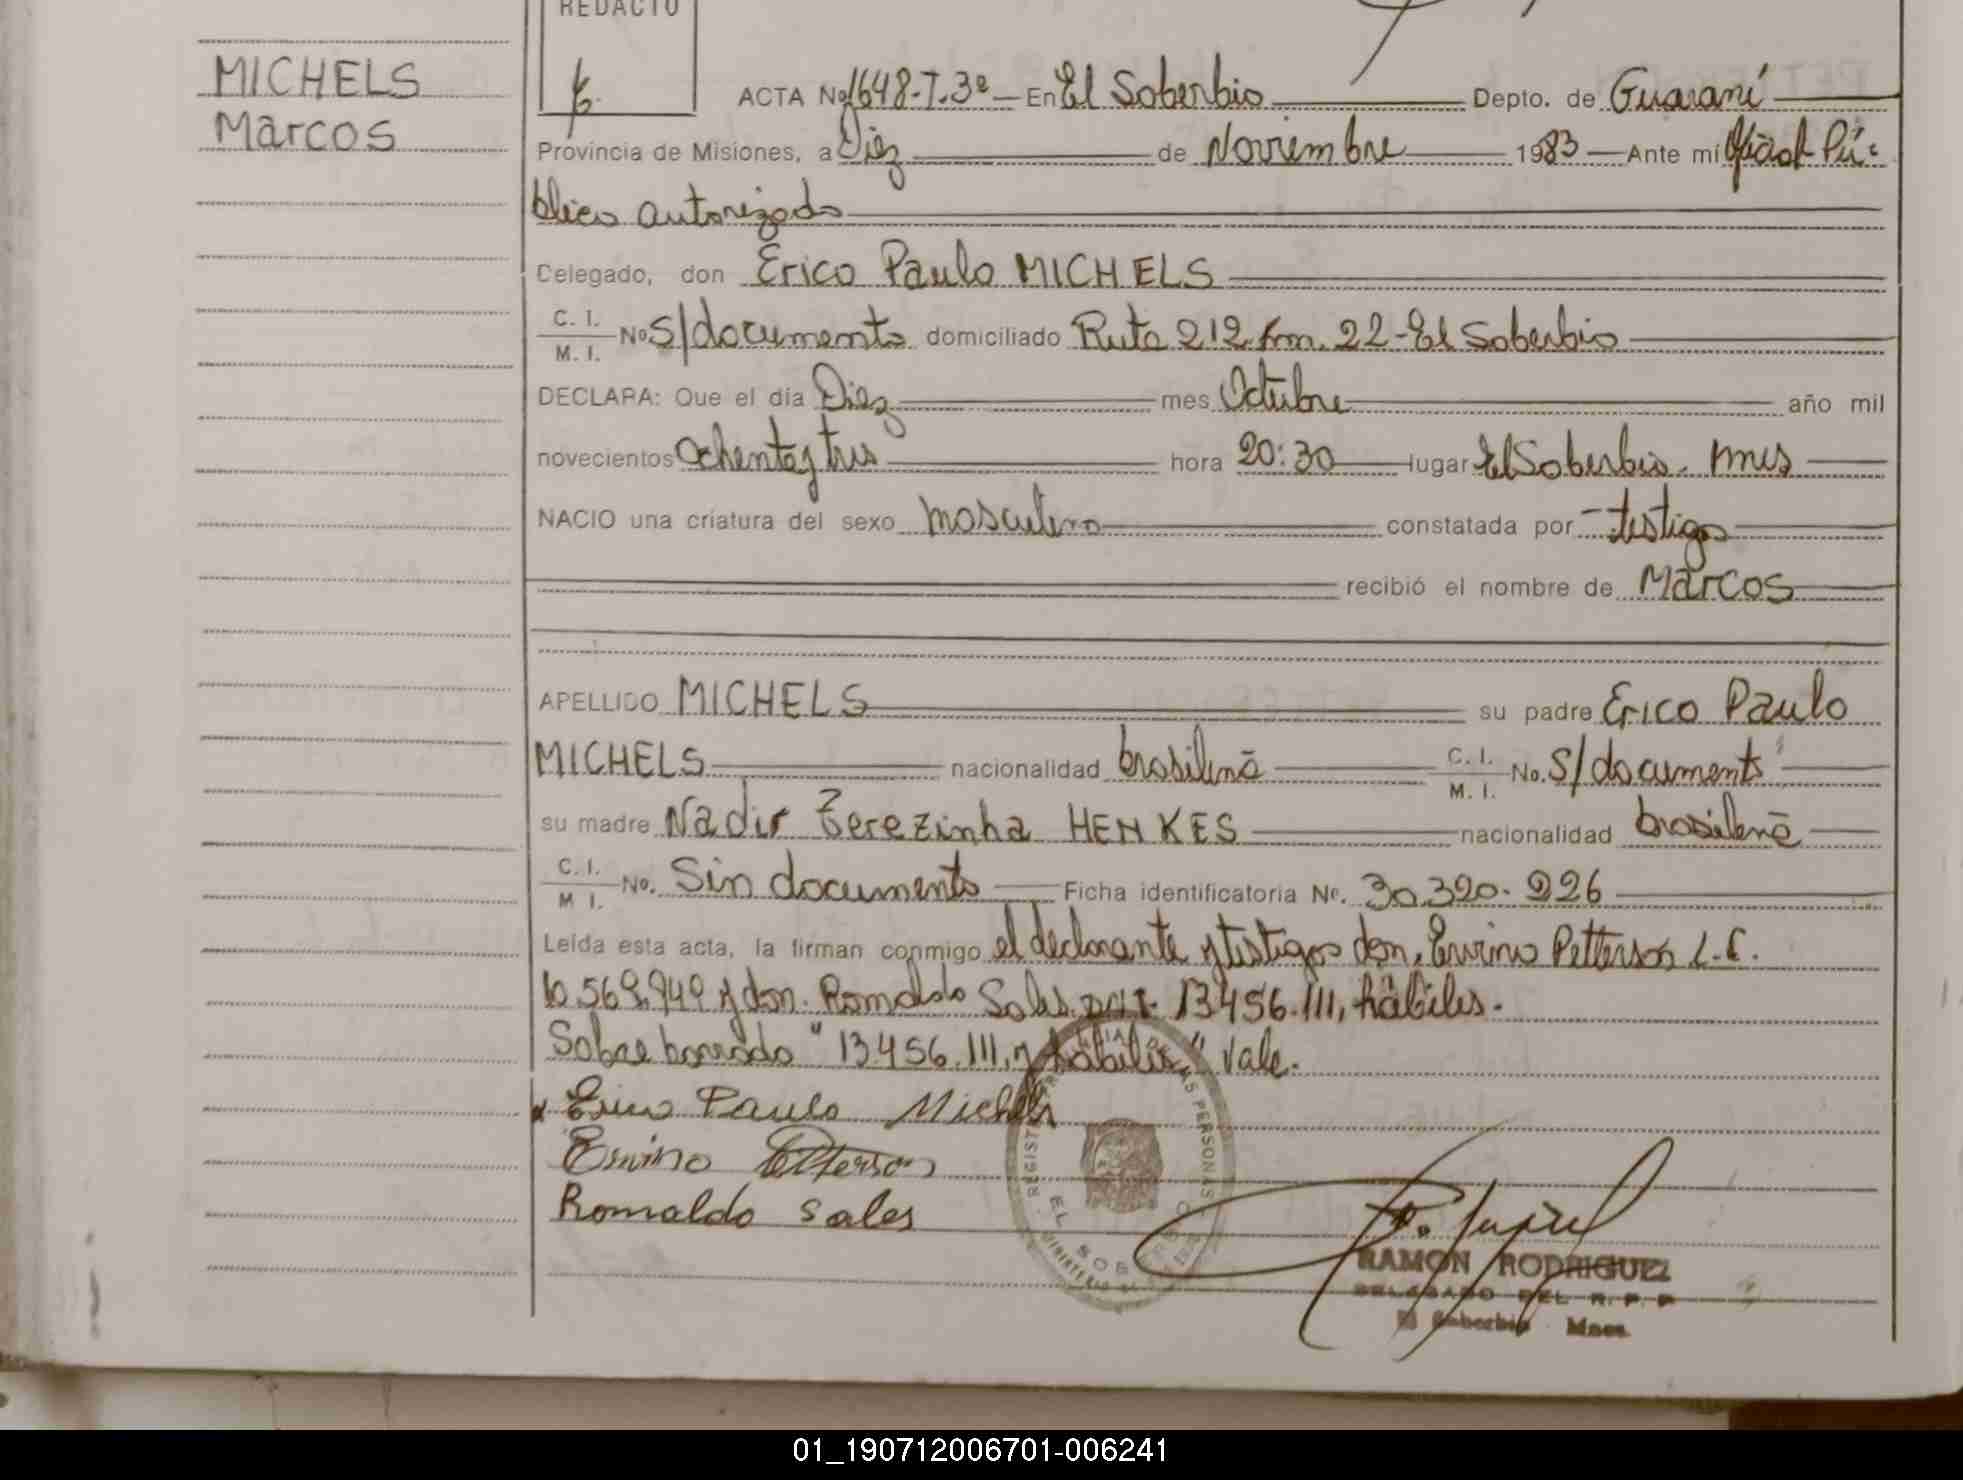 REDACTO
MICHELS
Marcos
ACTA No 1648-T.3º En El Soberbio Depto. de Guaraní
Provincia de Misiones, a Diez de Noviembre 1983 Ante mi Oficial Pú-
blico autorizado
Celegado, don Erico Paulo MICHELS
C. I.
M. I. No S/documento domiciliado Ruta 212 km. 22-El Soberbio
DECLARA: Que el día Diez mes Octubre año mil
novecientos ochenta y tres hora 20:30 lugar El Soberbio. Mnes
NACIO una criatura del sexo masculino constatada por testigos
recibió el nombre de Marcos
APELLIDO MICHELS su padre Erico Paulo
MICHELS nacionalidad brasileña C. I. M. I. No. S/documento
su madre Nadir Terezinha HENKES nacionalidad brasileña
C. I. M I. No. Sin documento Ficha identificatoria Nº. 30.320.226
Leída esta acta, la firman conmigo el declarante y testigos don. Ervino Petterson L.E.
y don. Romaldo Sales DNI 13456.111, hábiles.
Sobre borrado "13456.111, y hábiles" Vale.
x Erico Paulo Michels
Ervino Petterson
Romaldo Sales
DE LAS PERSONAS
EL SOBERBIO
RAMON RODRIGUEZ
DELEGADO DEL R. P. P.
El Soberbio Mnes.
01_190712006701-006241